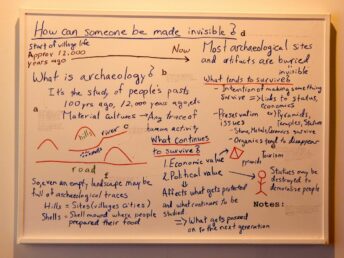 How can someone be made invisible?
d
Start of village life
Approx 12,000
years ago
Now
Most archaeological sites
and artifacts are buried
invisible
What is archaeology?
b
It's the study of people's pasts
100 yrs ago, 12,000 years ago, etc
Material cultures → Any trace of
human activity
a
hills
river
c
mounds
road
So, even an empty landscape may be
full of archaeological traces
Hills = Sites (villages cities)
Shells = Shell mound where people
prepared their food
What continues
to survive?
1. Economic value
2. Political value
Affects what gets protected
and what continues to be
studied
⇒ What gets passed
on to the next generation
What tends to survive?
- Intention of making something
survive ⇒ Links to status,
economics
- Preservation ⇒ Pyramids,
issues
Temples, Statues
- Stone, Metals, Ceramics survive
- Organics tend to disappear
tourism
pyramids
Statues may be
destroyed to
demoralise people
Notes: